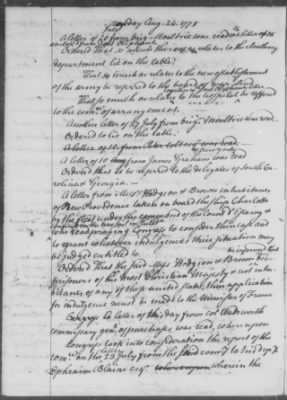 Monday Aug. 24. 1778
A letter of 20 from brig. Moultrie was read
Ordered That so much thereof as relates to the southern
department lie on the table:
That so much as relates to the new establishment
of the army be referred to the board of war
That so much as relates to the hospital be referred
to the com.ee of arrangement.
Another letter of 27 July from brig. Moultrie was read
Ordered to lie on the table.
A letter of 10 from James Graham was read
Ordered that it be referred to the delegates of South Ca-
rolina & Georgia.
A letter from Mess.rs Hodgson & Brown inhabitants
of New Providence taken on board the ship Charlotte
by the fleet under the command of the Count d'Estaing &
was read praying Congress to consider their case and
to grant whatever indulgence their situation may
be judged entitled to
Ordered That the said Mess.rs Hodgson & Brown be informed that
prisoners of his most Christian Majesty & not inha-
bitants of any of these united states, their application
for indulgence must be made to the Minister of France
Congress A letter of this day from col Wadsworth
commissary gen.l of purchases was read, whereupon
Congress took into consideration the report of the
com.ee on the letter 23 July from the said comy.
Ephraim Blaine esq.r wherein the